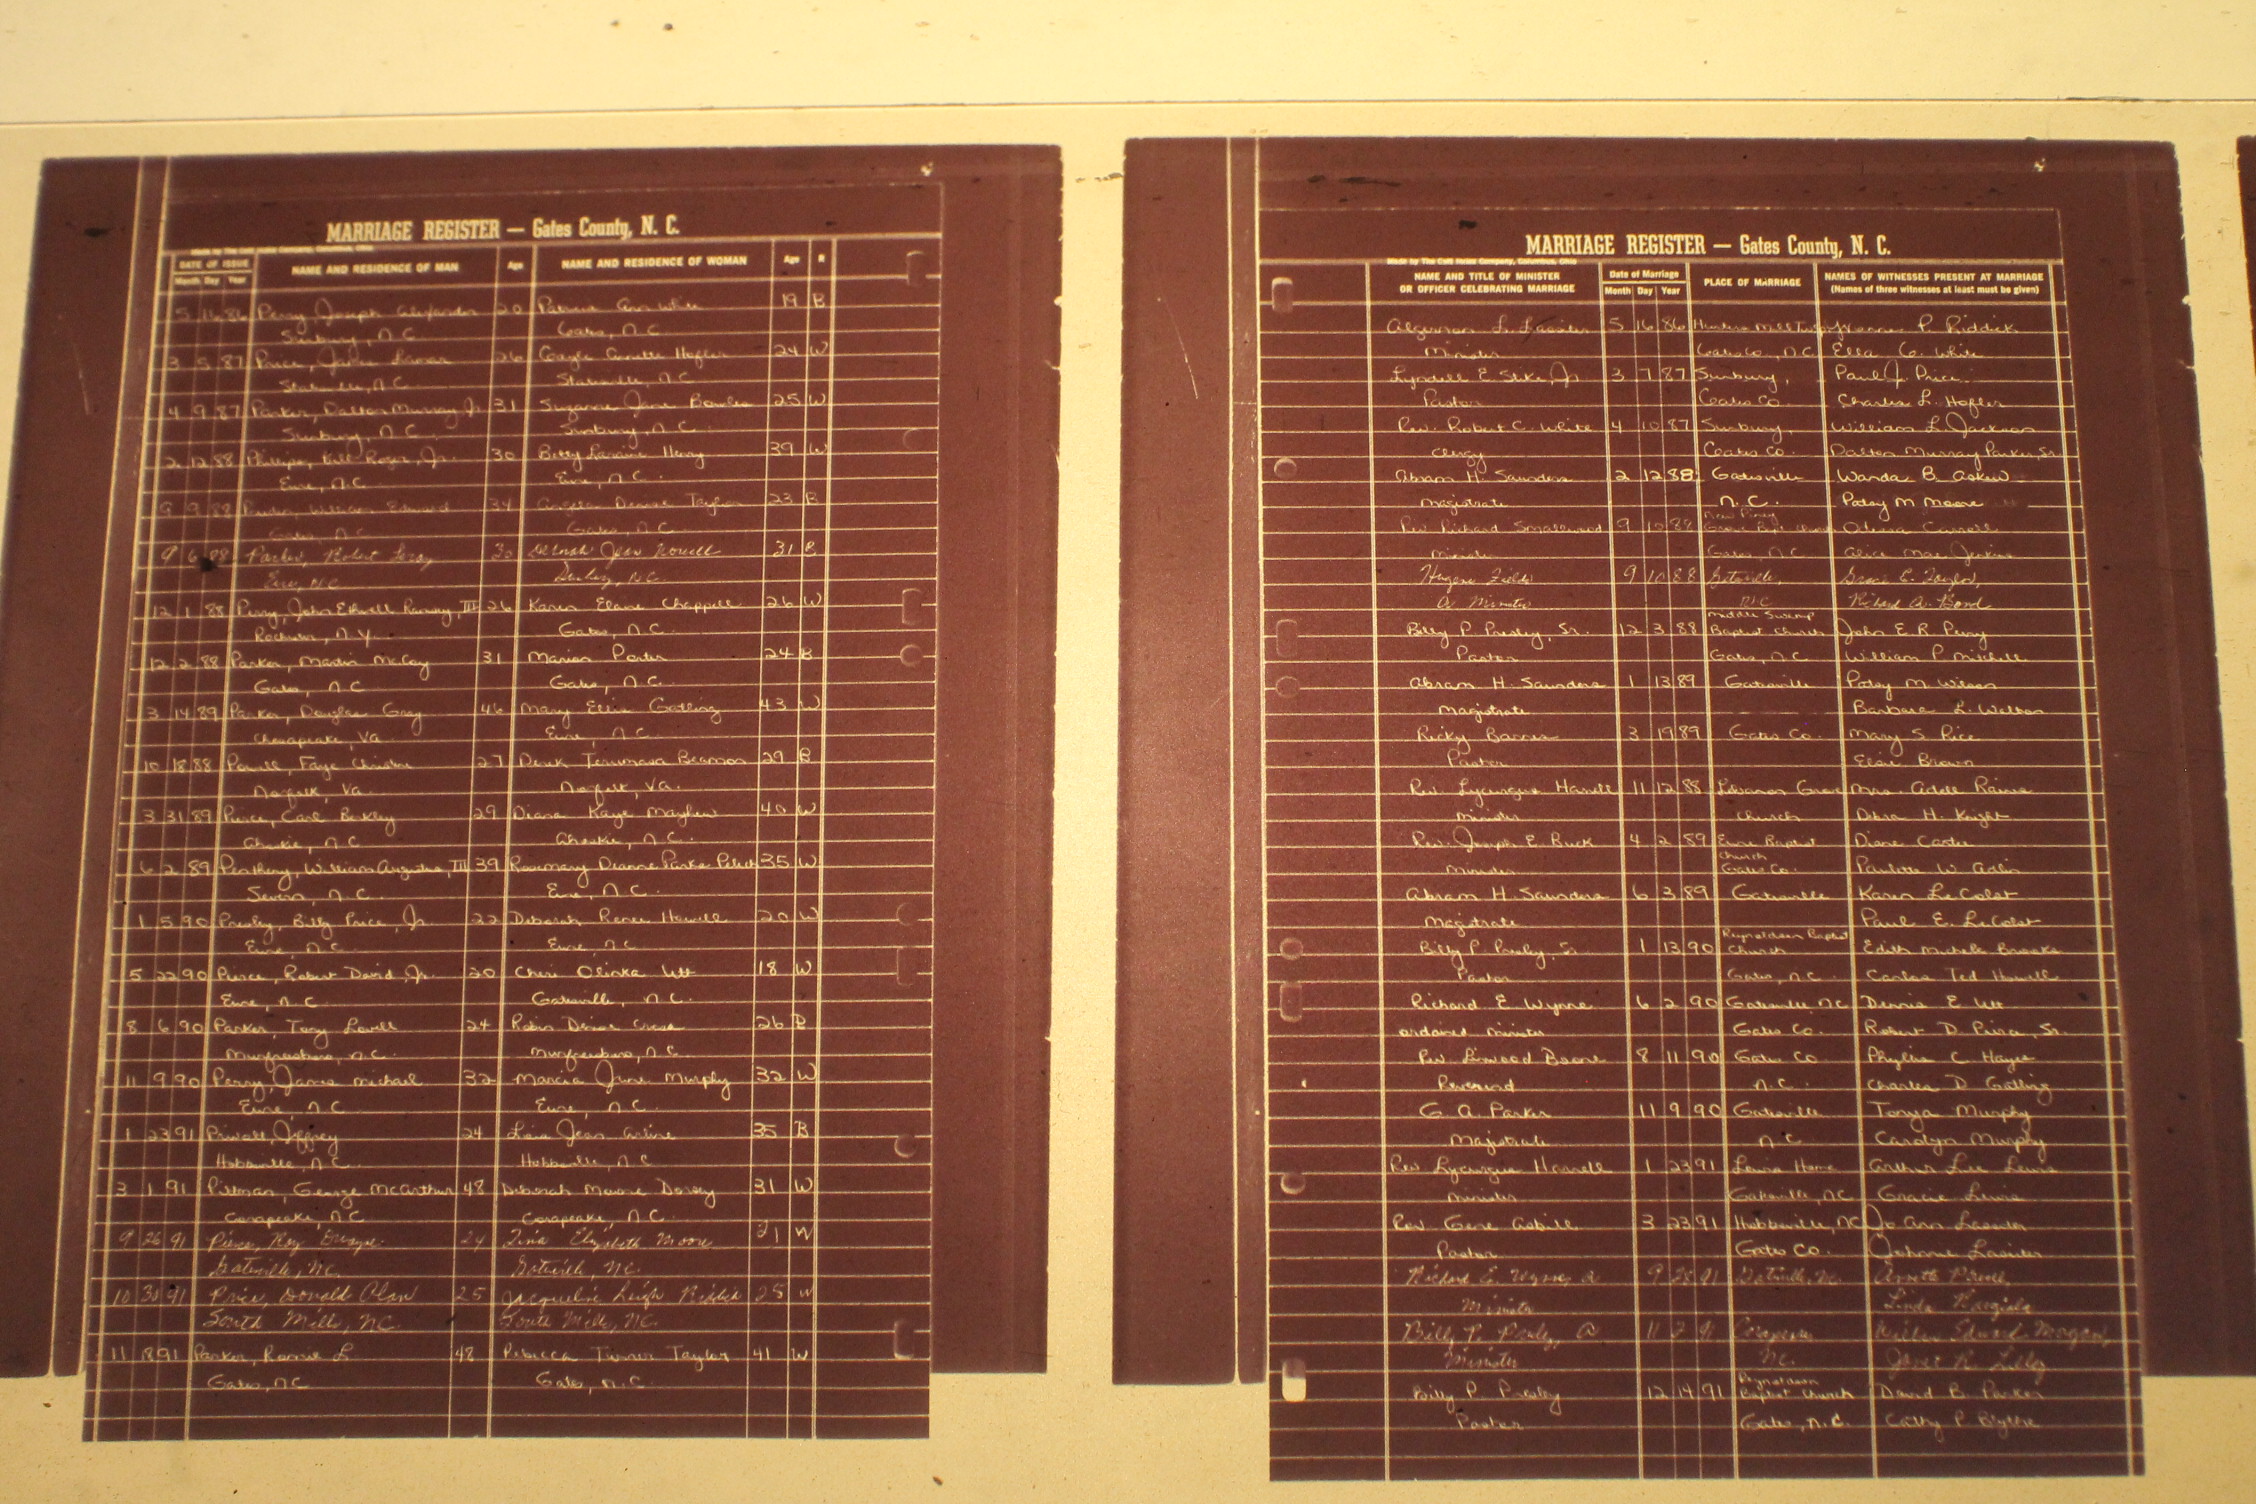 MARRIAGE REGISTER — Gates County, N. C.
DATE OF ISSUE
Month Day Year
NAME AND RESIDENCE OF MAN
Age
NAME AND RESIDENCE OF WOMAN
Age
R
5 16 86 Perry, Joseph Alexander 20 Patricia Ann White 19 B
Sunbury, N.C. Gates, N.C.
3 5 87 Price, Lamar 26 Gayle Annette Hofler 24 W
Statesville, N.C. Statesville, N.C.
4 9 87 Parker, Dalton Murray Jr. 31 Suzanne Jane Bowles 25 W
Sunbury, N.C. Sunbury, N.C.
2 12 88 Phillips, Roger, Jr. 30 Betty Laraine Henry 39 W
Eure, N.C. Eure, N.C.
9 9 88 William Edward 34 Angela Denise Taylor 23 B
Gates, N.C. Gates, N.C.
9 6 88 Parker, Robert Leroy 30 Deborah Jean 31 B
Eure, N.C. N.C.
12 1 88 Perry, John Ethwell Ramsey, III 26 Karen Elaine Chappell 26 W
N.Y. Gates, N.C.
12 2 88 Parker, Martin McCoy 31 Marian Porter 24 B
Gates, N.C. Gates, N.C.
3 14 89 Parker, Douglas Gray 46 Mary Ellis Gatling 43 W
Chesapeake, Va. Eure, N.C.
10 18 88 Powell, Faye Christine 27 Beamon 29 B
Norfolk, Va. Norfolk, Va.
3 31 89 Pierce, Carl Berkley 29 Diana Kaye Mayhew 40 W
Ahoskie, N.C. Ahoskie, N.C.
6 2 89 William Augustus, III 39 Rosemary Deanne Parker 35 W
Severn, N.C. Eure, N.C.
1 5 90 Presley, Billy Price, Jr. 22 Deborah Renee Howell 20 W
Eure, N.C. Eure, N.C.
5 22 90 Pierce, Robert David, Jr. 20 Cheri Olinka Utt 18 W
Eure, N.C. Gatesville, N.C.
8 6 90 Parker, Tony Lovell 24 Robin Denise 26 B
Murfreesboro, N.C. Murfreesboro, N.C.
11 9 90 Perry, James Michael 32 Marcia June Murphy 32 W
Eure, N.C. Eure, N.C.
1 23 91 Privott, Jeffrey 24 Jean Artine 35 B
Hobbsville, N.C. Hobbsville, N.C.
3 1 91 Pittman, George McArthur 48 Deborah Moore Dorsey 31 W
Corapeake, N.C. Corapeake, N.C.
9 26 91 Pierce, Roy Dwayne 24 Tina Elizabeth Moore 21 W
Gatesville, N.C. Gatesville, N.C.
10 30 91 Price, Donald Alan 25 Jacqueline Leigh Riddick 25 W
South Mills, N.C. South Mills, N.C.
11 18 91 Parker, Ronnie L 48 Rebecca Turner Taylor 41 W
Gates, N.C. Gates, N.C.
MARRIAGE REGISTER — Gates County, N. C.
NAME AND TITLE OF MINISTER
OR OFFICER CELEBRATING MARRIAGE
Date of Marriage
Month Day Year
PLACE OF MARRIAGE
NAMES OF WITNESSES PRESENT AT MARRIAGE
(Names of three witnesses at least must be given)
Algernon L. Lassiter 5 16 86 Hunters Mill Twp Yvonne P. Riddick
Minister Gates Co., N.C. Ella C. White
Lyndell E. Jr. 3 7 87 Sunbury, Paul J. Price
Pastor Gates Co. Charles L. Hofler
Rev. Robert C. White 4 10 87 Sunbury, William L. Jackson
Clergy Gates Co. Dalton Murray Parker, Sr.
Abram H. Saunders 2 12 88 Gatesville Wanda B. Askew
Magistrate N.C. Patsy M Moore
Rev. Richard Smallwood 9 10 88 New Piney Grove Bapt. Church Odessa Carroll
Minister Gates, N.C. Alice Mae Jenkins
Fields 9 10 88 Gatesville, Grace E.
A Minister N.C. Richard A. Bond
Billy P. Presley, Sr. 12 3 88 Middle Swamp Baptist Church John E. R. Perry
Pastor Gates, N.C. William P. Mitchell
Abram H. Saunders 1 13 89 Gatesville Patsy M. Wilson
Magistrate Barbara L. Walton
Ricky Barnes 3 19 89 Gates Co. Mary S. Rice
Pastor Elsie Brown
Rev. Lycurgus Harrell 11 12 88 Lebanon Grove Mrs. Adell Raines
Minister Church Debra H. Knight
Rev. Joseph E. Buck 4 2 89 Eure Baptist Diane Carter
Minister Church Gates Co. Paulette W.
Abram H. Saunders 6 3 89 Gatesville Karen LeColst
Magistrate Paul E. LeColst
Billy P. Presley, Sr. 1 13 90 Reynoldson Baptist Church Edith Michele Brooks
Pastor Gates, N.C. Carlos Ted Howell
Richard E. Wynne 6 2 90 Gatesville, NC Dennis E. Utt
Ordained Minister Gates Co. Robert D. Pierce, Sr.
Rev. Linwood Boone 8 11 90 Gates Co Phyllis C.
Reverend N.C. Charles D. Gatling
G. A. Parker 11 9 90 Gatesville Tonya Murphy
Magistrate N.C. Carolyn Murphy
Rev. Lycurgus Harrell 1 23 91 Lewis Home Arthur Lee Lewis
Minister Gatesville, NC Gracie Lewis
Rev. Gene Asbill 3 23 91 Hobbsville, NC Jo Ann Lassiter
Pastor Gates Co. Johnnie Lassiter
Richard E. Wynne, A 9 28 91 Gatesville, N.C. Annette
Minister Linda
Billy P. Presley, A 11 2 91 Corapeake Edward Morgan,
Minister N.C. Janet R. Lilley
Billy P. Presley 12 14 91 Reynoldson Baptist Church David B. Parker
Pastor Gates, N.C. Cathy P. Blythe